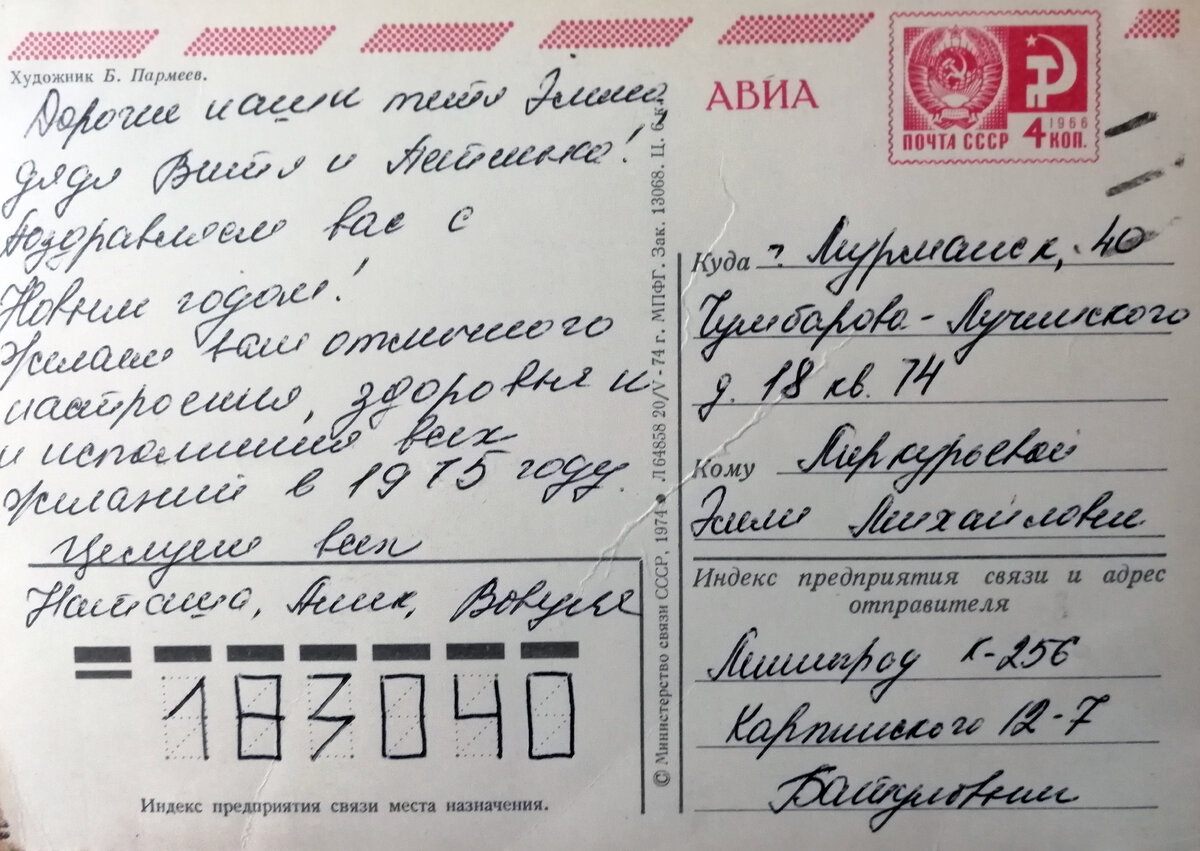 Художник Б. Пармеев.
Дорогие наши тётя Эмма,
дядя Витя и
Поздравляем вас с
Новым годом!
Желаем вам отличного
настроения, здоровья и
и исполнения всех
желаний в 1975 году.
Целуем всех
Наташа, Алик, Вовуля
183040
Индекс предприятия связи места назначения.
© Министерство связи СССР, 1974 ● Л 64858 20/V - 74 г. МПФГ. Зак. 13068. Ц. 6 к.
АВИА
1966
ПОЧТА СССР 4 КОП.
Куда г. Мурманск, 40
Чумбарова-Лучинского
д. 18 кв. 74
Кому Меркурьевой
Михайловне
Индекс предприятия связи и адрес
отправителя
Ленинград К-256
Карпинского 12-7